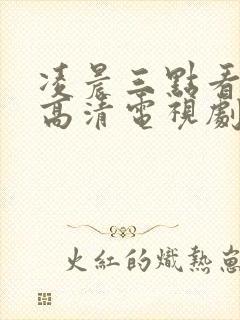 凌晨三點看
高清電視劇
火紅的熾熱